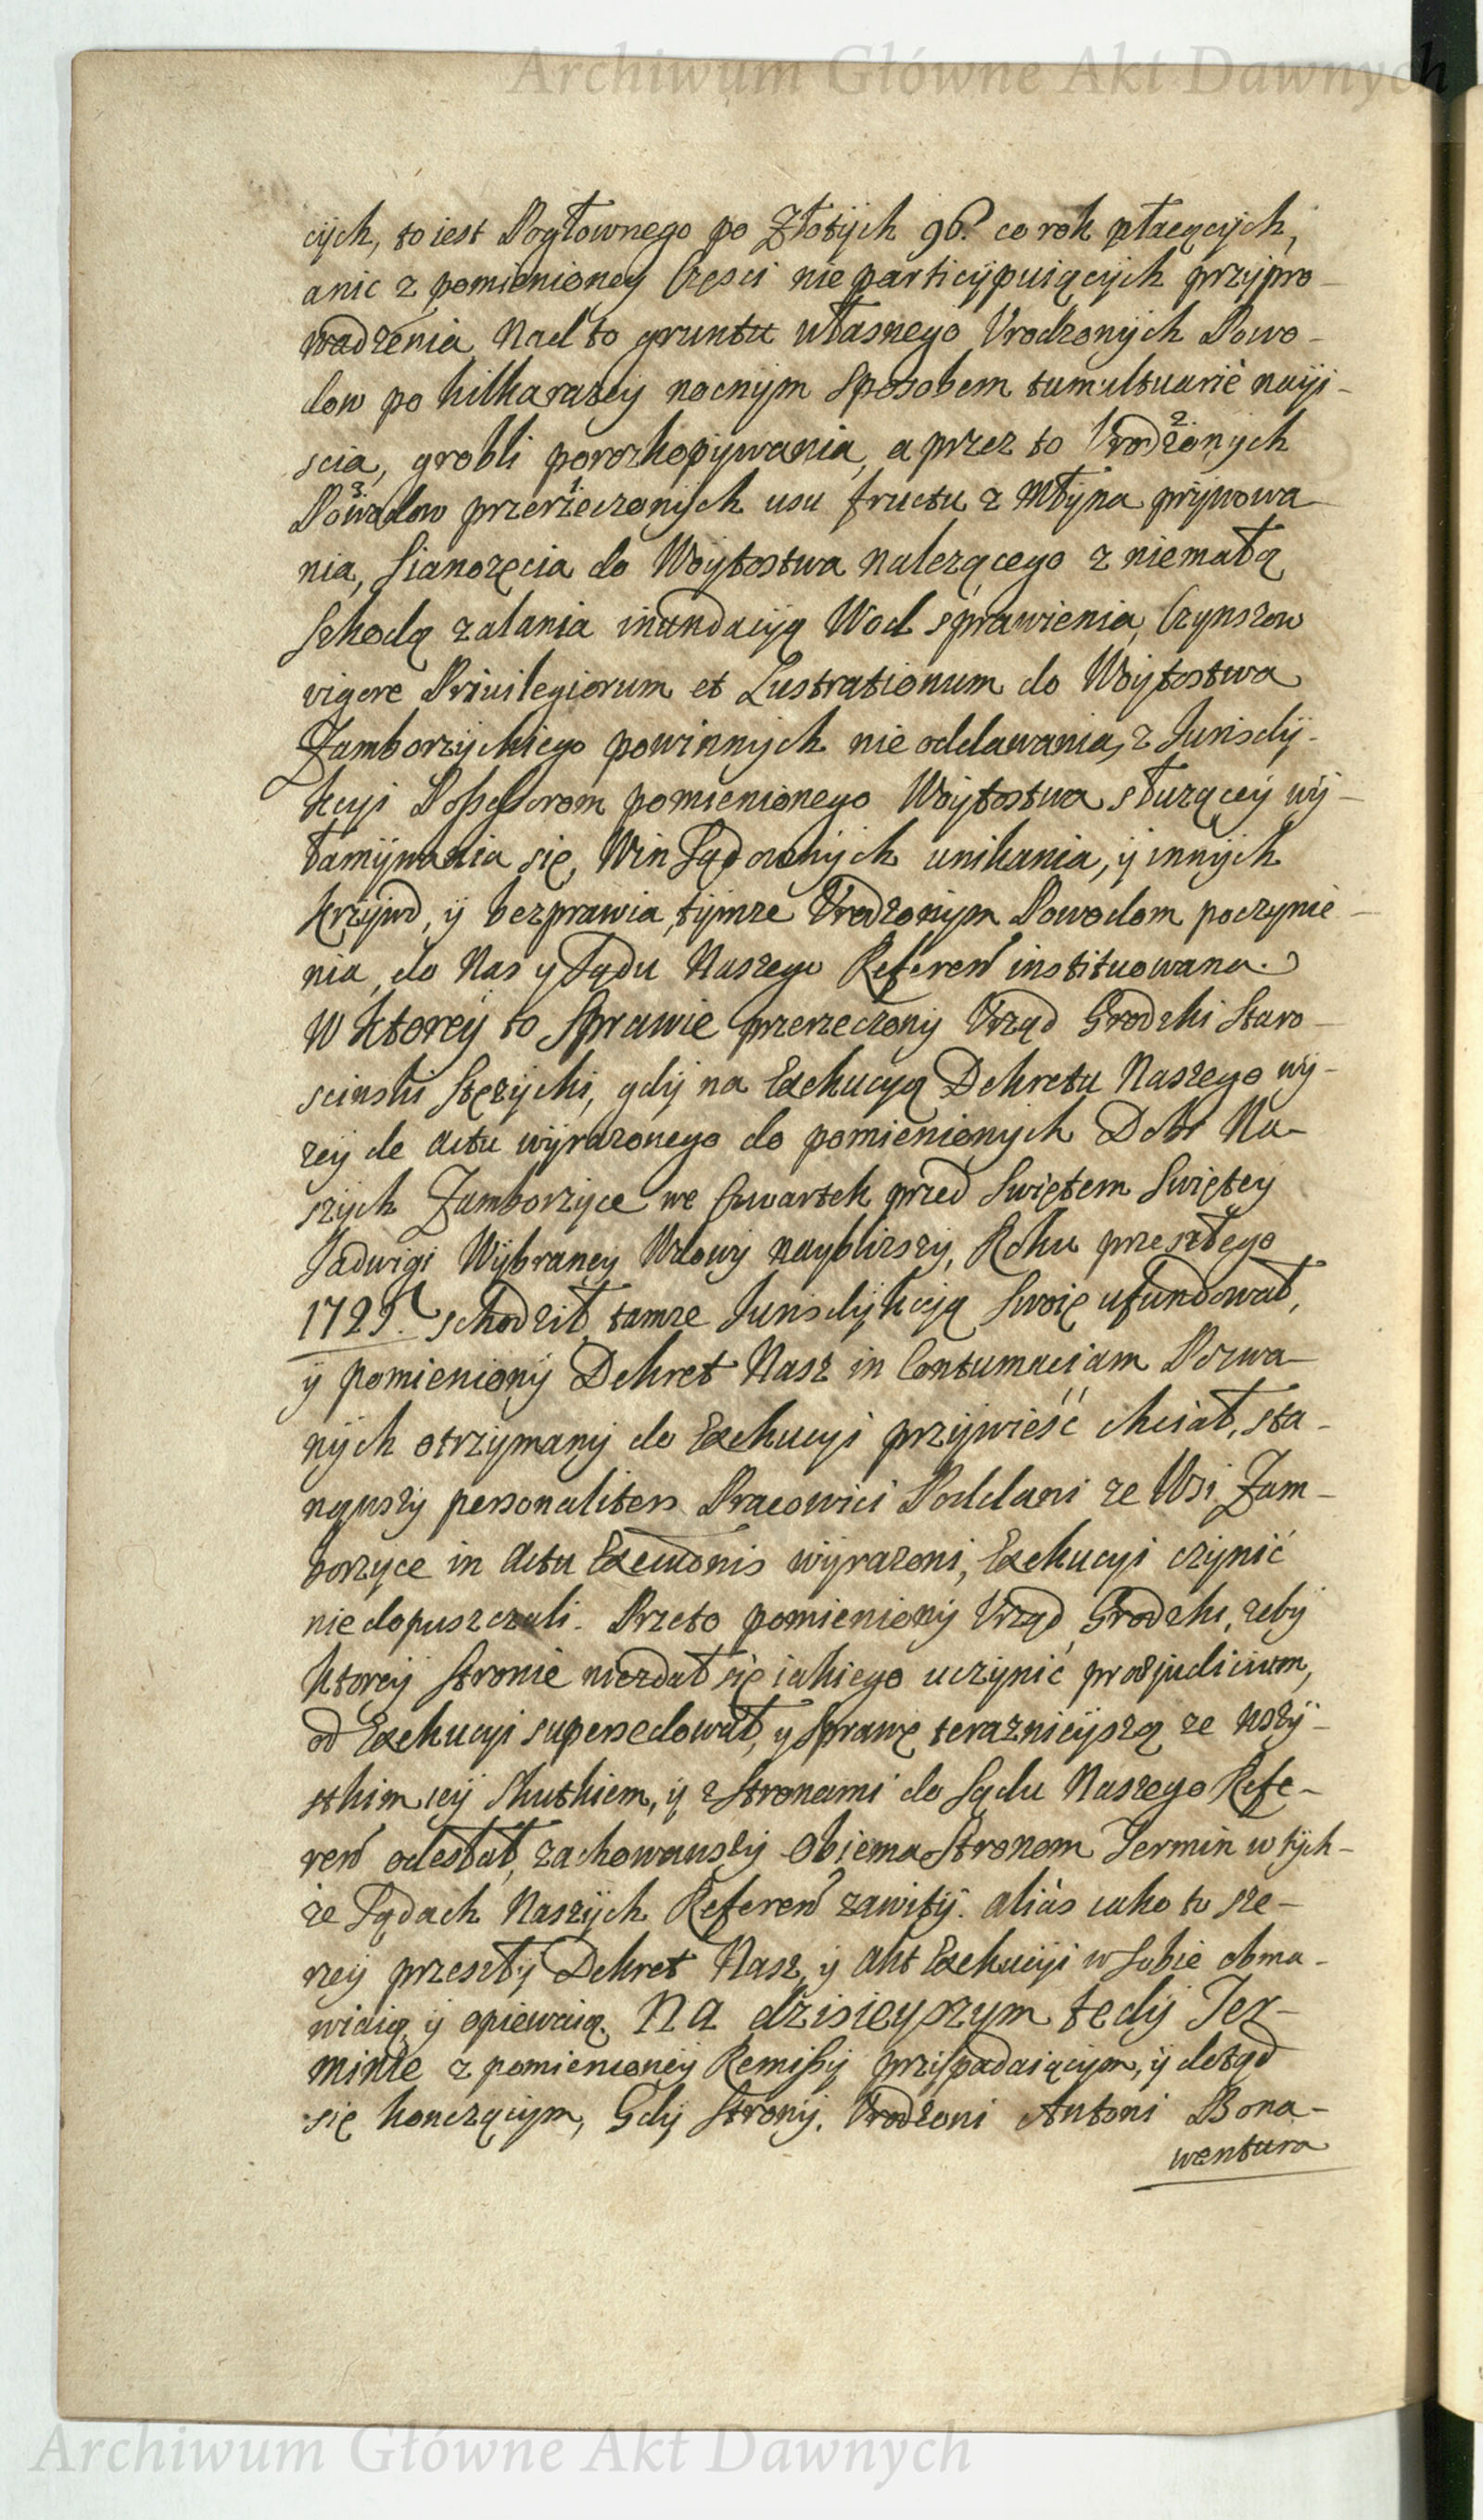 Archiwum Główne Akt Dawnych
cÿch, to iest Pogłownego po Złotÿch 96. co rok płacącÿch,
anic z pomienioneÿ Częsci nie particÿpuiącÿch przÿpro-
wadzenia, Nad to gruntu własnego Vrodzonÿch Powo-
dow po kilka razeÿ nocnÿm sposobem tumultuarie naÿi-
scia, grobli porozkopÿwania, a przez to Vrodzonÿch
Powodow przerzeczonÿch usu fructu z Młÿna prÿwowa-
nia, Sianozęcia do Woÿtostwa nalezącego z niemałą
Szkodą zalania inundacÿą Wod sprawienia, Czynszow
vigore Priuilegiorum et Lustrationum do Woÿtostwa
Zamborzÿckiego powinnÿch nie oddawania, z Jurisdÿ-
kcÿi Possessorom pomienionego Woÿtostwa słuząceÿ wÿ-
łamÿwania się, Win Sądowÿch unikania, ÿ innÿch
krzÿwd, ÿ bezprawia, tÿmze Vrodzonÿm Powodom poczynie-
nia, do Nas y Sądu Naszego Referen instituowana.
W ktoreÿ to Sprawie przerzeczonÿ Vrząd Grodzki Staro-
scinski Stęzÿcki, gdÿ na Exekucyą Dekretu Naszego wÿ-
zeÿ de actu wÿrazonego do pomienionÿch Dobr Na-
szÿch Zamborzÿce we Czwartek przed Swiętem Swięteÿ
Jadwigi Wÿbraneÿ Wdowÿ naÿblizszÿ, Roku przeszłego
1729. schodził, tamze Jurisdÿkcÿą Swoię ufundował,
ÿ pomienionÿ Dekret Nasz in Contumaciam Pozwa-
nÿch otrzymanÿ do Exekucÿi przÿwieść chciał, sta-
nąwszÿ personaliter Pracowici Poddani ze Wsi Zam-
borzyce in actu Executionis wÿrazeni, Exekucyi czÿnić
nie dopuszczali. Przeto pomienionÿ Vrząd Grodzki, zebÿ
ktoreÿ Stronie niezdał się iakiego uczÿnić praejudicium,
od Exekucyi supersedował, ÿ Sprawę teraznieÿszą ze wszÿ-
stkim ieÿ Skutkiem, ÿ z Stronami do Sądu Naszego Refe-
ren odesłał, zachowawszÿ Obiema Stronom Termin w tÿch-
ze Sądach Naszÿch Referen zawitÿ. aliàs iako to sze-
rzeÿ przeszłÿ Dekret Nasz, ÿ akt Exekucÿi w Sobie obma-
wiaią, ÿ opiewaią. Na dzisieÿszym tedÿ Ter-
minie z pomienioneÿ Remissÿ przÿpadaiącÿm, ÿ dotąd
się konczącÿm, Gdÿ Stronÿ, Vrodzoni Antoni Bona-
wentura
Archiwum Główne Akt Dawnych